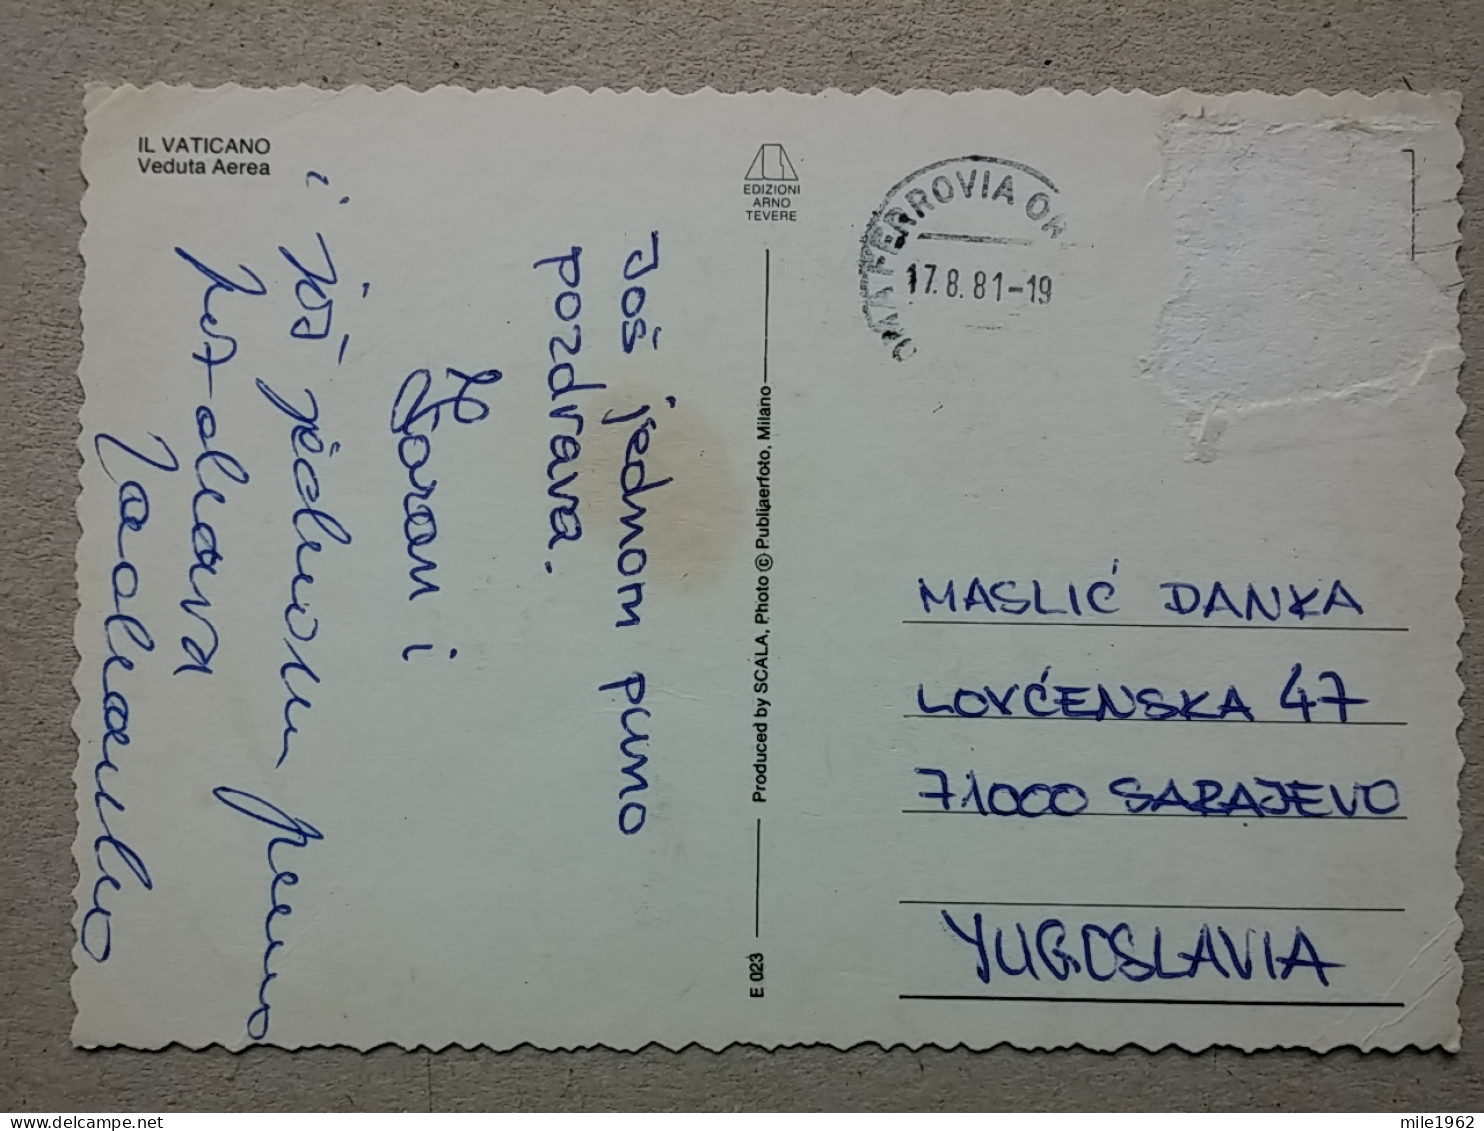 IL VATICANO
Veduta Aerea
EDIZIONI
ARNO
TEVERE
OMA FERROVIA OR
17.8.81-19
Još jednom puno
pozdrava.
Zoran i
i još jednom puno
pozdrava
E 023
Produced by SCALA, Photo © Publiaerfoto, Milano
MASLIĆ DANKA
LOVĆENSKA 47
71000 SARAJEVO
YUGOSLAVIA
mile1962